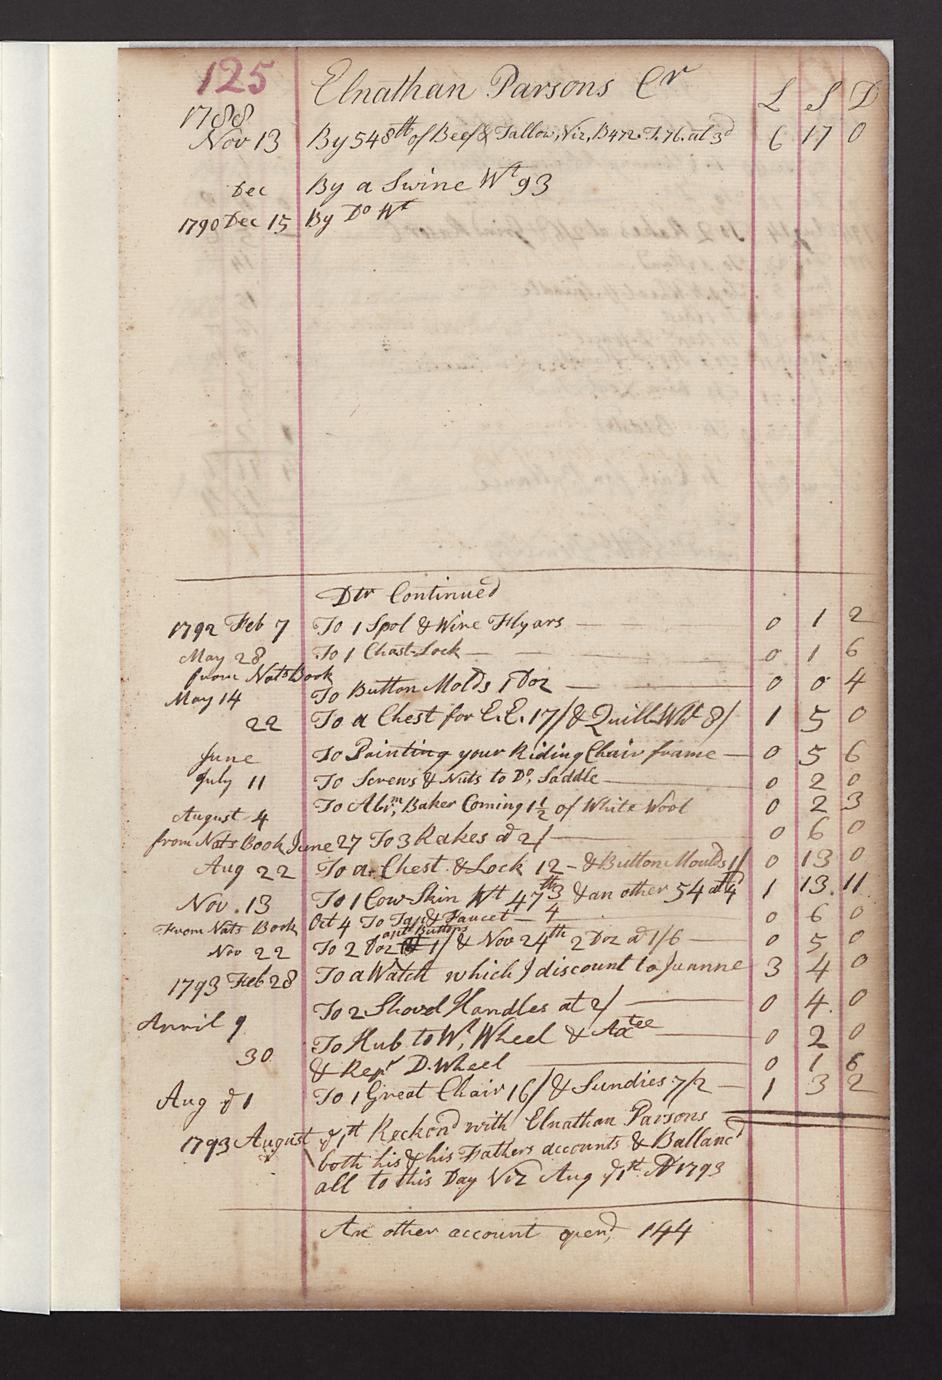 125 Elnathan Parsons Cr L S D
1788
Nov 13 By 548 lb of Beef & Tallow, Viz, B472. T. 76. at 3d 6 17 0
Dec By a Swine Wt 93
1790 Dec 15 By Do Wt
Dtr Continued
1792 Feb 7 To 1 Spol & Wire Flyars 0 1 2
May 28 To 1 Chast-Lock 0 1 6
from Nats Book
May 14 To Button Molds 1 Doz 0 0 4
22 To a Chest for E.E. 17/ & Quill Whl 8/ 1 5 0
June To Painting your Riding Chair frame 0 5 6
July 11 To Screws & Nuts to Do, Saddle 0 2 0
August 4 To Abrm, Baker Coming 1 1/2 of White Wool 0 2 3
from Nats Book June 27 To 3 Rakes at 2/ 0 6 0
Aug 22 To a Chest & Lock 12 - & Button Moulds 1/ 0 13 0
Nov. 13 To 1 Cow-Skin Wt 47 lb 3 & an other 54 at 4d 1 13 11
From Nats Book Oct 4 To Tap & Faucet - 4 0 6 0
Nov 22 To 2 Doz Buttons 1/ & Nov 24th 2 Doz at 1/6 0 5 0
1793 Feb 28 To a Watch which I discount to Juanne 3 4 0
To 2 Shovel Handles at 2/ 0 4 0
April 9 To Hub to Wl, Wheel & Axtee 0 2 0
30 & Repr D. Wheel 0 1 6
Aug ye 1 To 1 Great Chair 16/ & Sundries 7/2 1 3 2
1793 August ye 1st Reckond with Elnathan Parsons
both his & his Fathers accounts & Balland
all to this Day Viz Aug ye 1st. AD 1793
An other account opend, 144